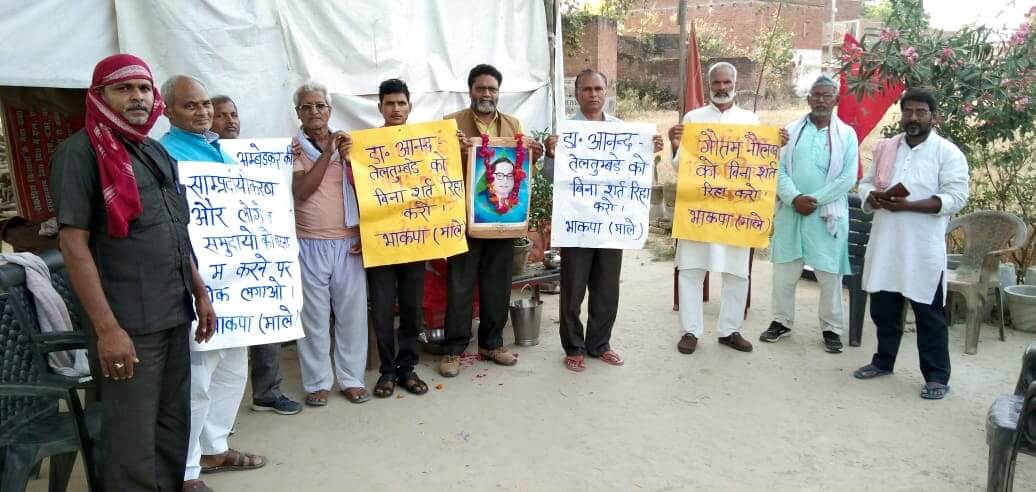 अम्बेडकर की
साम्प्रदायीकरण
और लोगो
समुदायों को
म करने पर
रोक लगाओ।
भाकपा (माले)
डा॰ आनन्द-
तेलतुम्बड़े को
बिना शर्त रिहा
करो।
भाकपा (माले)
डा॰ आनन्द-
तेलतुम्बड़े को
बिना शर्त रिहा
करो।
भाकपा (माले)
गौतम नौलखा
को बिना शर्त
रिहा करो।
भाकपा (माले)